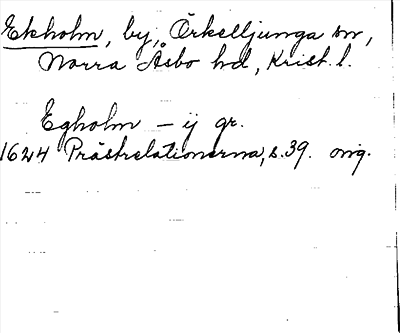 Ekholm, by, Örkelljunga sn,
Norra Åsbo hd, Krist. l.
Egholm – ij gr.
1624 Prästrelationerna, s. 39. orig.